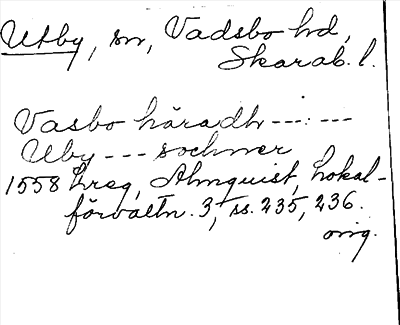 Utby, sn, Vadsbo hd,
Skarab. l.
Vasbo häradh ---:---
Uby --- sochner
1558 Lreg, Almquist, Lokal-
förvaltn. 3, ss. 235, 236.
orig.